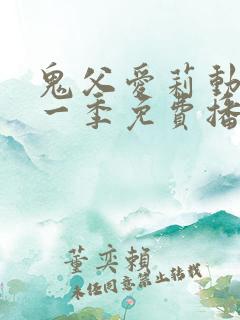 鬼父愛莉動
一季免費播
董奕賴
未經同意禁止轉載